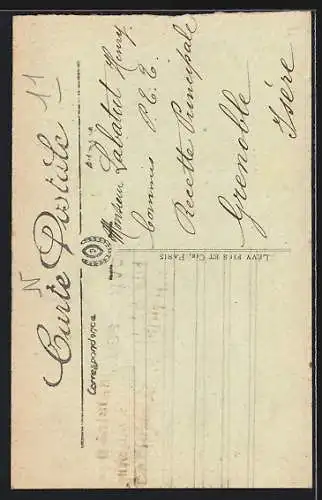 11
N
Carte Postale
Correspondance
Adresse
Monsieur Labatut Henry
Commis P.E.C.
Recette Principale
Grenoble
Isère
LÉVY FILS ET CIE, PARIS